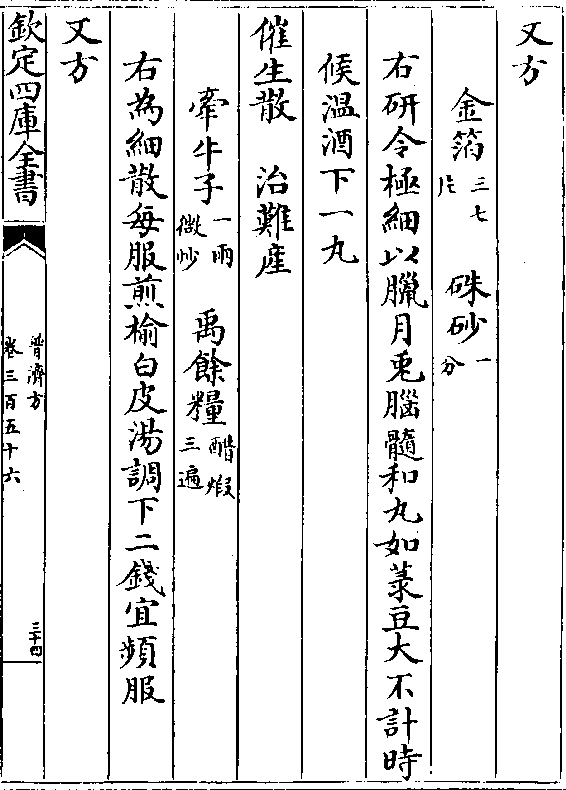 又方
金箔三七片　硃砂一分
右研令極細以臘月兎腦髓和丸如菉豆大不計時
候温酒下一丸
催生散　治難産
牽牛子一兩微炒　禹餘糧醋煆三遍
右為細散每服煎榆白皮湯調下二錢宜頻服
又方
欽定四庫全書
普濟方
卷三百五十六
三十四